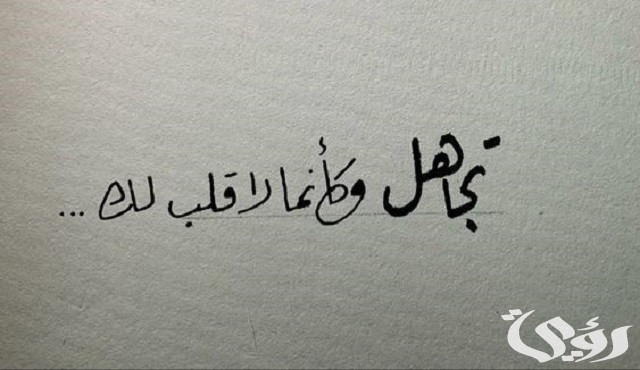 تجاهل وكأنما لا قلب لك...
رؤية